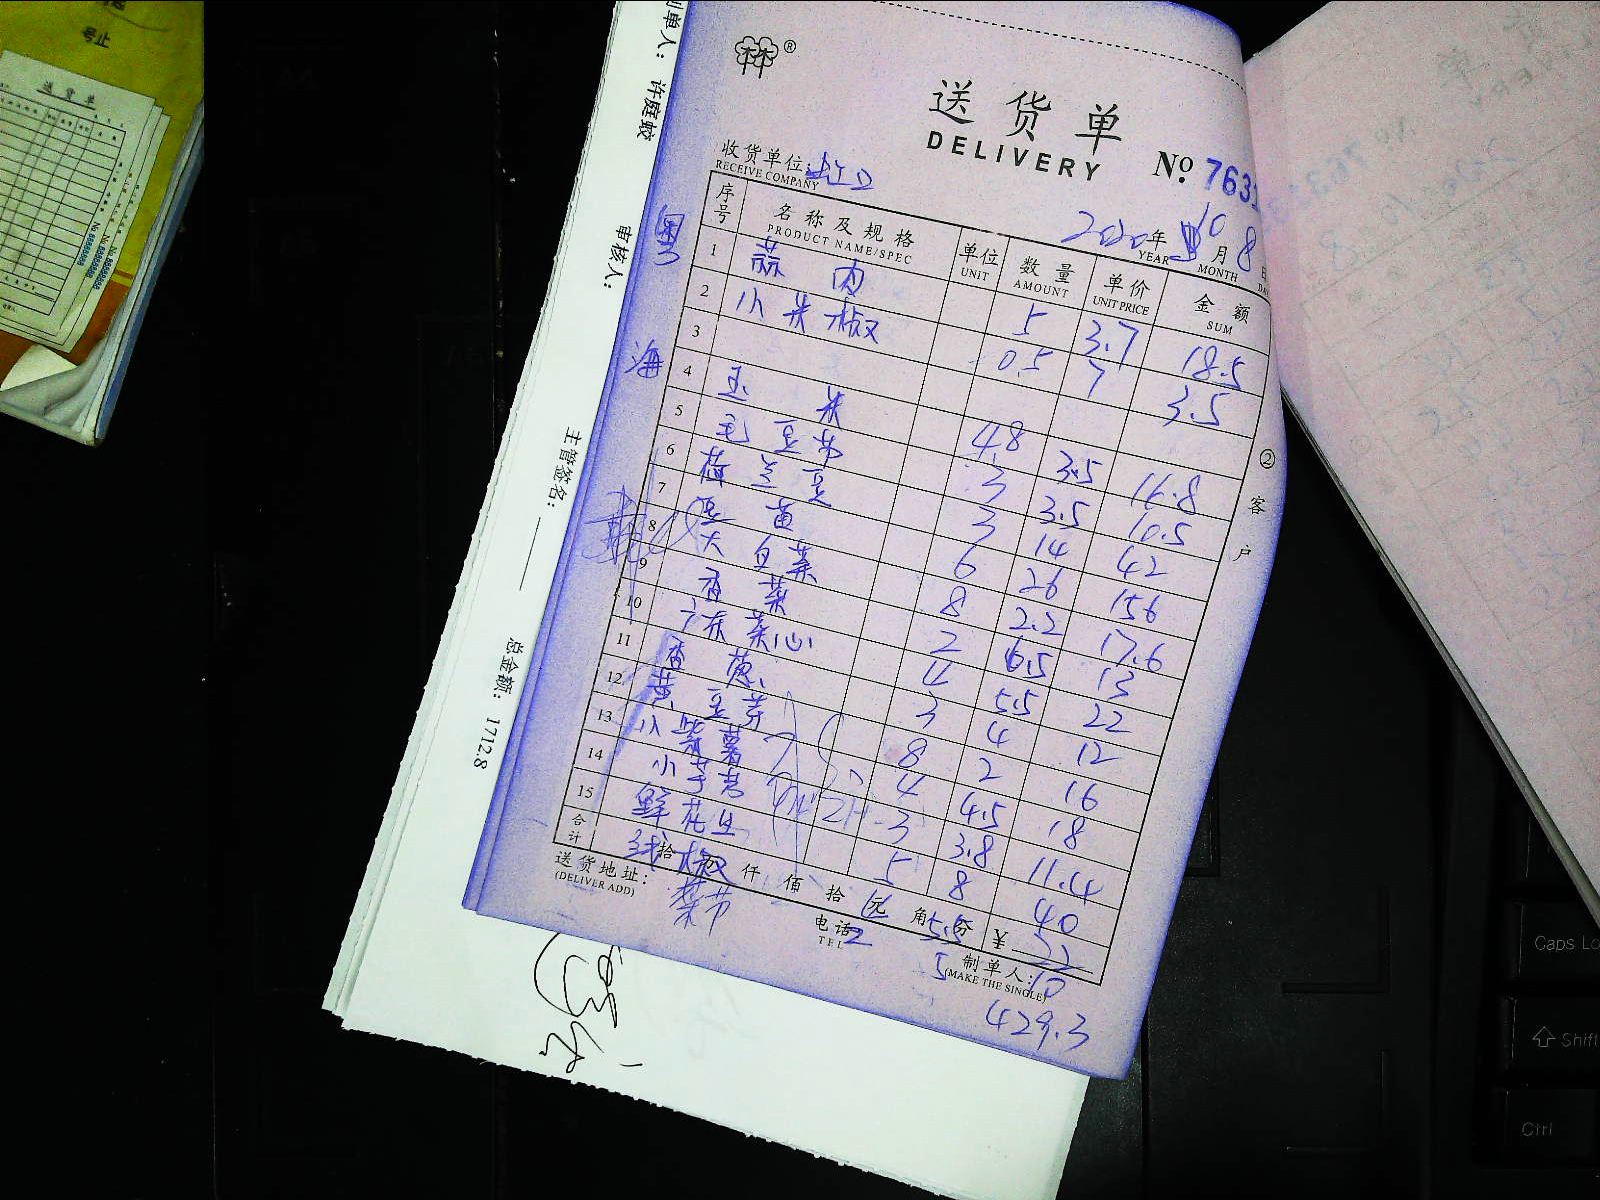 送货单
DELIVERY
№ 763
收货单位: 虹口
RECEIVE COMPANY
2020年 10月 8日
YEAR MONTH
序号 名称及规格 单位 数量 单价 金额
PRODUCT NAME/SPEC UNIT AMOUNT UNIT PRICE SUM
1 蒜肉 5 3.7 18.5
2 小米椒 0.5 7 3.5
3
4 玉米 4.8 3.5 16.8
5 毛豆米 3 3.5 10.5
6 荷兰豆 3 14 42
7 豆苗 6 26 156
8 大白菜 8 2.2 17.6
9 香菜 2 6.5 13
10 广东菜心 4 5.5 22
11 香葱 3 4 12
12 黄豆芽 8 2 16
13 小紫薯 4 4.5 18
14 小芋艿 3 3.8 11.4
15 鲜花生 5 8 40
合计 拾 万 仟 佰 拾 元 角 分 ¥
线椒 4 5.5 22
送货地址:
(DELIVER ADD)
电话
TEL
制单人:
(MAKE THE SINGLE)
菜节 2 5 10
429.3
②客户
粤海
制单人: 许庭蛟
审核人:
主管签名:
总金额: 1712.8
号止
送货单
Caps Lo
Shift
Ctrl